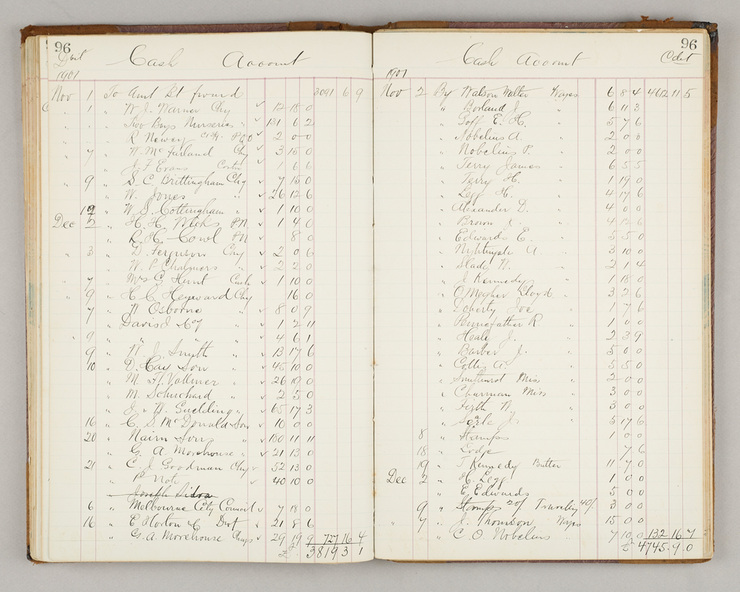 96
Cash Account
1901
Nov 1 To Amt Bt forwd 3091 6 9
1 " W. J. Warner Chq 12 18 0
" Two Bays Nurseries " 181 6 2
" R Newey 2 0 0
7 " W McFarland Chq 3 15 0
" J F Evans 1 6 6
9 " S. C. Brittingham Chq 7 15 0
" W. Jones " 26 12 6
" W. J. Cottingham " 1 10 0
Dec 2 " H. H. PN 1 4 0
" R. H. Cowl PN 8 0
3 " D. Ferguson Chq 2 0 6
" W. P. Chalmers " 2 2 0
7 " Mrs C. Hunt Cash 1 10 0
9 " H. C. Heyward Chq 16 0
7 " H Osborne " 8 0 9
" Davis J " 1 2 11
9 " " 4 6 1
9 " N. J. Smith " 13 17 6
10 " D. Hay Son " 45 10 0
" M. H. Vollmer " 26 19 0
" M. Schuchard " 2 5 0
" J. H. Gueldling " 65 17 3
16 " C. S. McDonald Son 10 0 0
20 " Nairn Sons " 180 11 11
" G. A. Morehouse " 21 13 0
21 " E. J. Goodman Chq 52 13 0
" P. Noti " 40 10 0
" Joseph
6 " Melbourne City Council 7 18 0
16 " E Hodon 21 8 6
" G. A. Morehouse Chq 29 19 9 727 16 4
£ 3819 3 1
96
Cash Account
Credit
1901
Nov 2 By Watson Walter Wages 6 8 4 4612 11 5
" Borland J. " 6 11 3
" Goff E. H. " 5 7 6
" Nobelius A. " 2 0 0
" Nobelius P. " 2 0 0
" Terry James " 6 5 5
" Terry H. " 1 19 0
" Legg H. " 4 17 6
" Alexander D. " 4 0 0
" Brown " 4 12 6
" Edwards E. " 5 5 0
" Nightingale A. " 3 10 0
" Slady " 2 1 4
" J. Kennedy " 1 18 0
" O'Meagher Lloyd " 3 2 6
" Doherty Joe " 1 7 6
" Pennefather R. " 1 0 0
" Healy J. " 2 3 9
" Barber J. " 5 0 0
" A. " 5 5 0
" Smethurst Miss " 2 0 0
" Chapman Miss " 3 0 0
" Firth " 3 0 0
" Searle J. " 5 17 6
8 " Stamps 1 0 0
18 " Lodge 7 6
19 " T. Kennedy Butter 11 7 0
Dec 2 " H. Legg 1 0 0
" E. Edwards 5 0 0
9 " Stamps 20/ 40/ 3 0 0
7 " J. Thomson Wages 15 0 0
" C. O. Nobelius 7 10 0 132 16 7
£ 4745 9 0